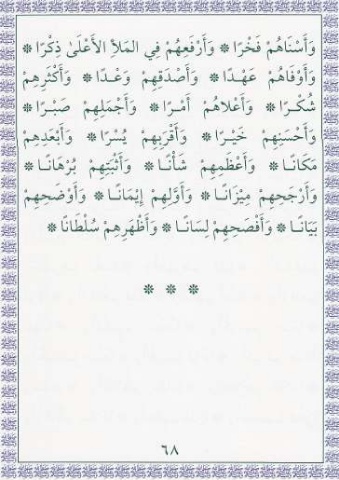 وَأَسْنَاهُمْ فَخْرًا * وَأَرْفَعِهُمْ فِي الْمَلَأِ الْأَعْلَىٰ ذِكْرًا *
وَأَوْفَاهُمْ عَهْدًا * وَأَصْدَقِهِمْ وَعْدًا * وَأَكْثَرِهِمْ
شُكْرًا * وَأَعْلَاهُمْ أَمْرًا * وَأَجْمَلِهِمْ صَبْرًا *
وَأَحْسَنِهِمْ خَيْرًا * وَأَقْرَبِهِمْ يُسْرًا * وَأَبْعَدِهِمْ
مَكَانًا * وَأَعْظَمِهِمْ شَأْنًا * وَأَثْبَتِهِمْ بُرْهَانًا *
وَأَرْجَحِهِمْ مِيزَانًا * وَأَوَّلِهِمْ إِيمَانًا * وَأَوْضَحِهِمْ
بَيَانًا * وَأَفْصَحِهِمْ لِسَانًا * وَأَظْهَرِهِمْ سُلْطَانًا *
* * *
٦٨